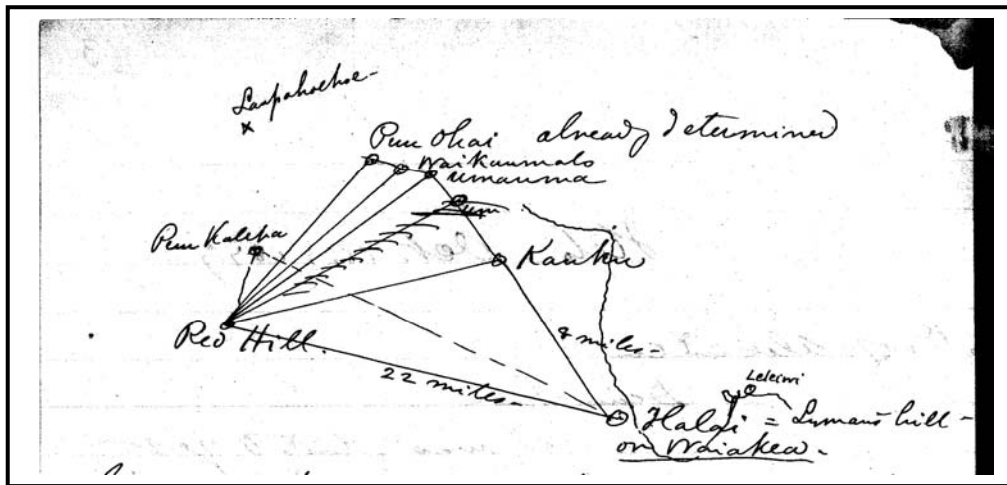 Laupahoehoe -
x
Puu Ohai already determined
Waikaumalo
Umauma
Puu Kaleha
Kauku
Red Hill.
8 miles -
22 miles -
Leleiwi
Halai = Lyman's hill -
on Waiakea -